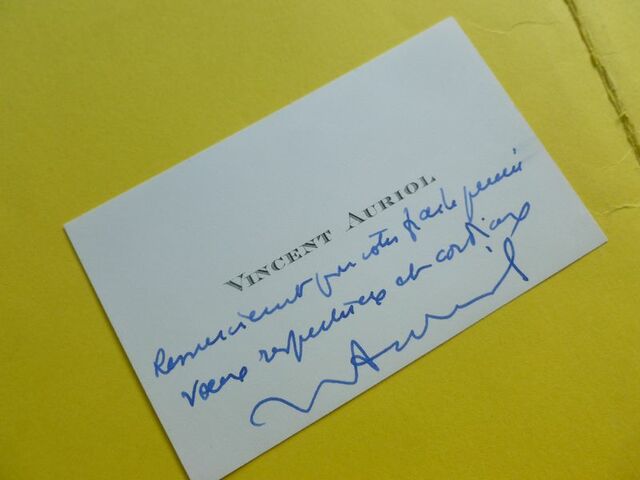 VINCENT AURIOL
Remerciements pour votre fidèle pensée
Vœux respectueux et cordiaux
V Auriol